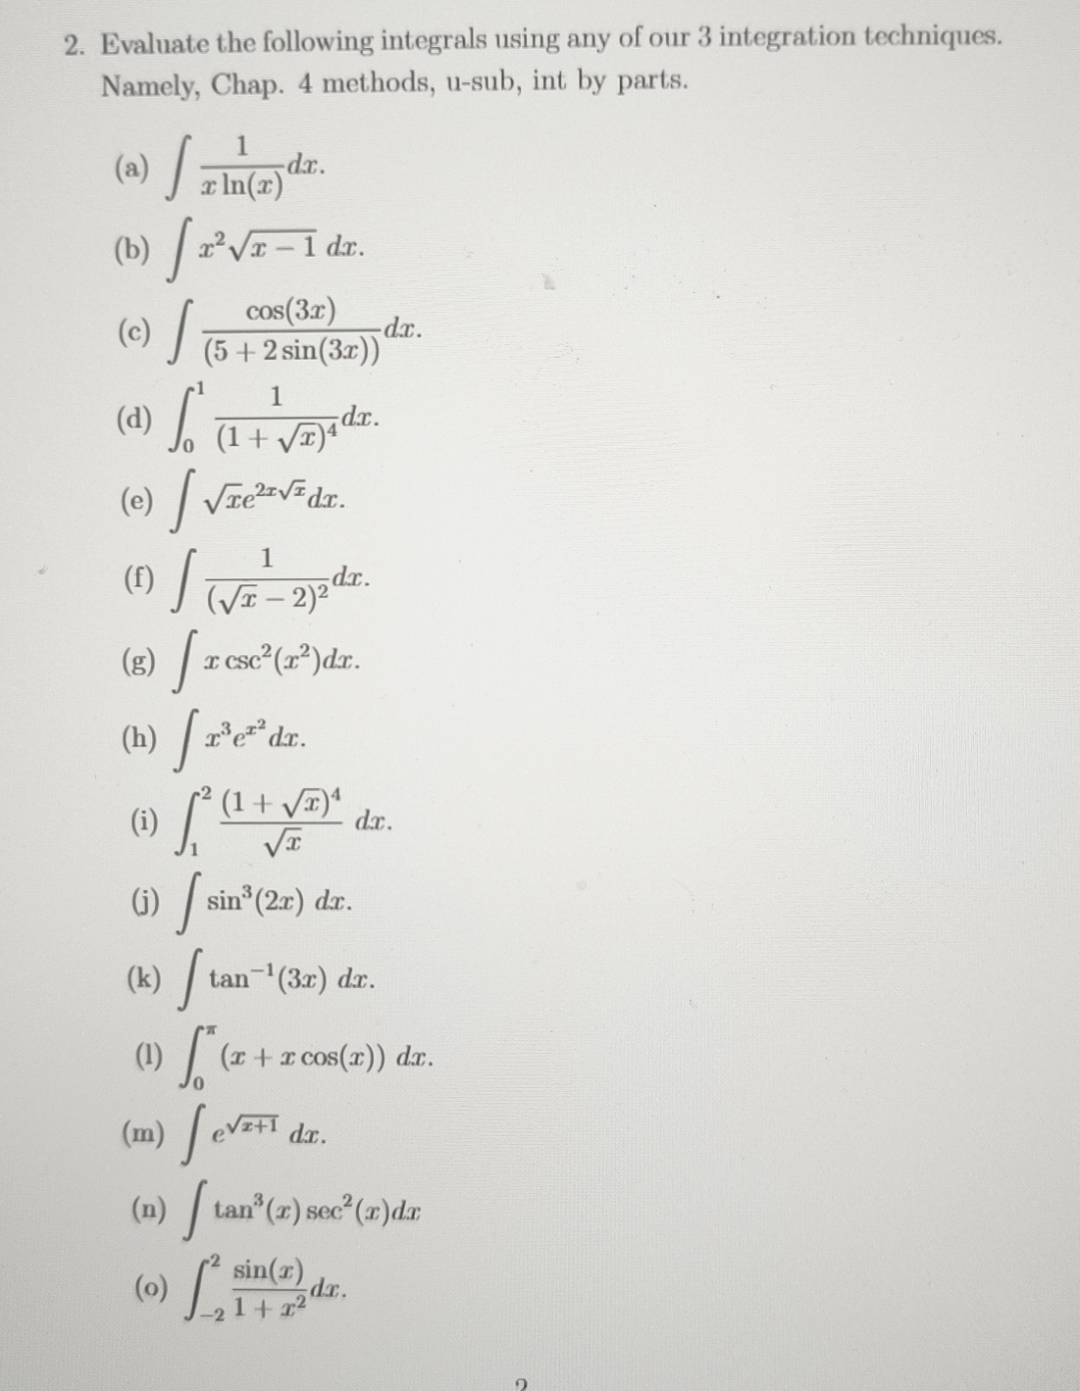 2. Evaluate the following integrals using any of our 3 integration techniques.
Namely, Chap. 4 methods, u-sub, int by parts.
(a) $\int \frac{1}{x \ln(x)} dx.$
(b) $\int x^2 \sqrt{x-1} \, dx.$
(c) $\int \frac{\cos(3x)}{(5 + 2\sin(3x))} dx.$
(d) $\int_0^1 \frac{1}{(1+\sqrt{x})^4} dx.$
(e) $\int \sqrt{x} e^{2x\sqrt{x}} dx.$
(f) $\int \frac{1}{(\sqrt{x}-2)^2} dx.$
(g) $\int x \csc^2(x^2) dx.$
(h) $\int x^3 e^{x^2} dx.$
(i) $\int_1^2 \frac{(1+\sqrt{x})^4}{\sqrt{x}} \, dx.$
(j) $\int \sin^3(2x) \, dx.$
(k) $\int \tan^{-1}(3x) \, dx.$
(l) $\int_0^{\pi} (x + x\cos(x)) \, dx.$
(m) $\int e^{\sqrt{x+1}} \, dx.$
(n) $\int \tan^3(x) \sec^2(x) dx$
(o) $\int_{-2}^2 \frac{\sin(x)}{1+x^2} dx.$